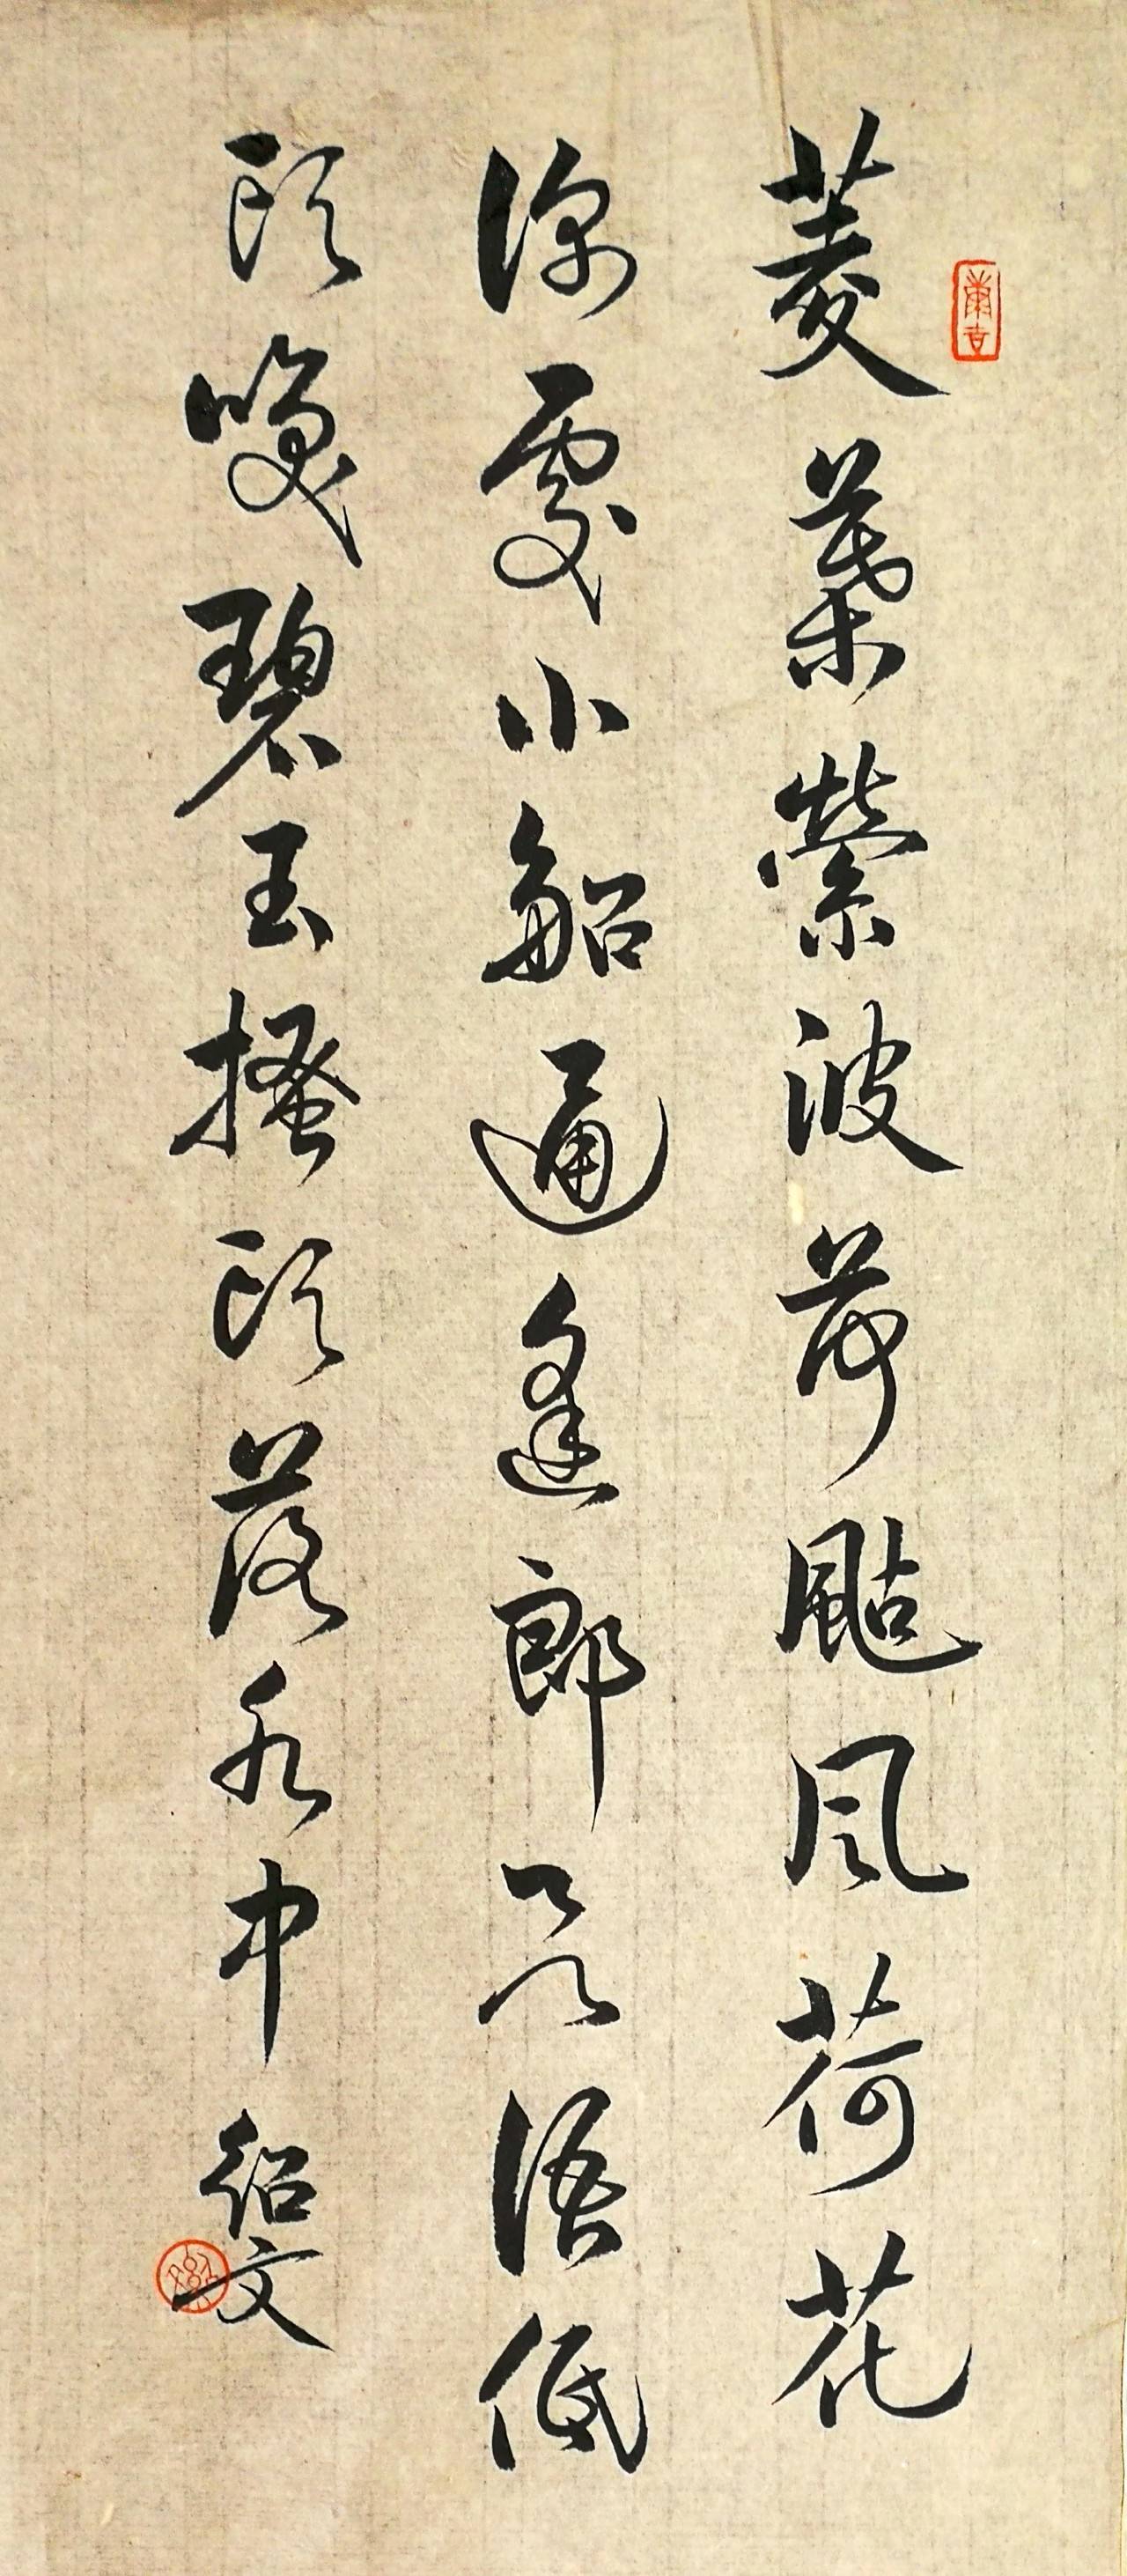 菱葉縈波荷颭風荷花
深處小船通逢郎欲語低
頭咲碧玉搔頭落水中 紹文